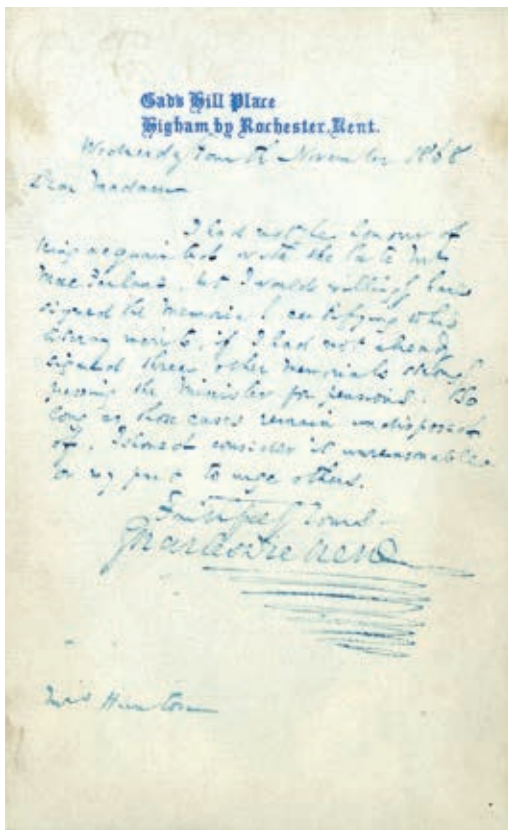 Gad's Hill Place
Higham by Rochester, Kent.
Wednesday Fourth November 1868
Dear Madam
I had not the honour of
being acquainted with the late Mr
Mac Farlane, but I would willingly have
signed the memorial certifying to his
literary merits, if I had not already
signed three other memorials
pressing the Minister for pensions. So
long as those cases remain undisposed
of, I should consider it unreasonable
on my part to urge others.
Faithfully Yours
Charles Dickens
Mrs Hunton